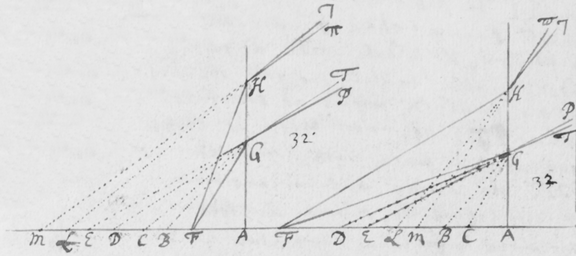 T π
H
T P
G 32
M L E D C B F A
π T
H
P T
G 32
F D E L M B C A